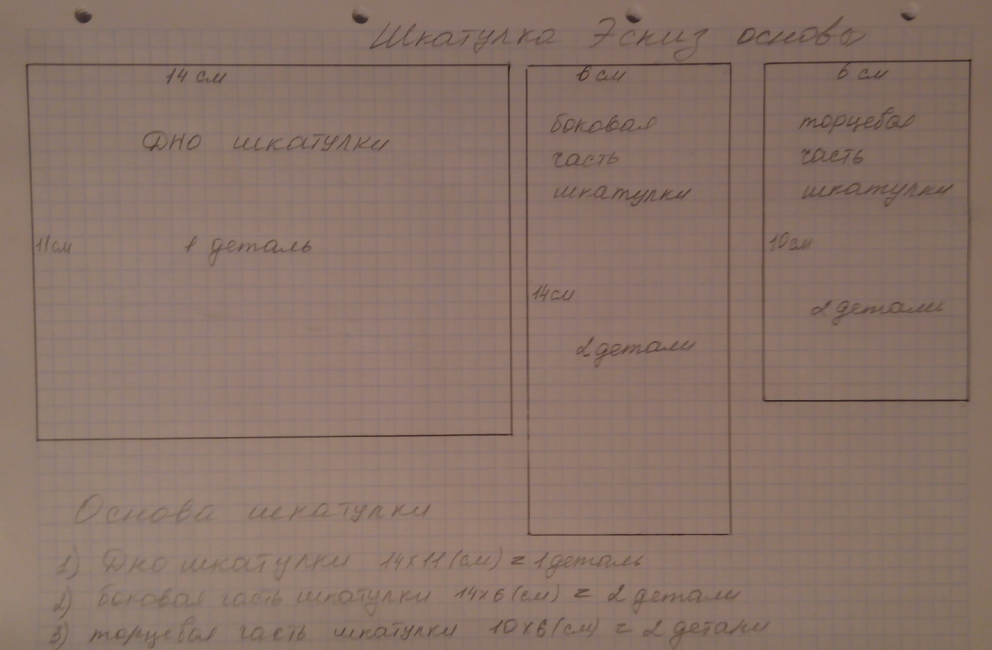 Шкатулка Эскиз основы
14 см
Дно шкатулки
11 см
1 деталь
6 см
боковая
часть
шкатулки
14 см
2 детали
6 см
торцевая
часть
шкатулки
10 см
2 детали
Основа шкатулки
1) Дно шкатулки 14х11 (см) = 1 деталь
2) боковая часть шкатулки 14х6 (см) = 2 детали
3) торцевая часть шкатулки 10х6 (см) = 2 детали